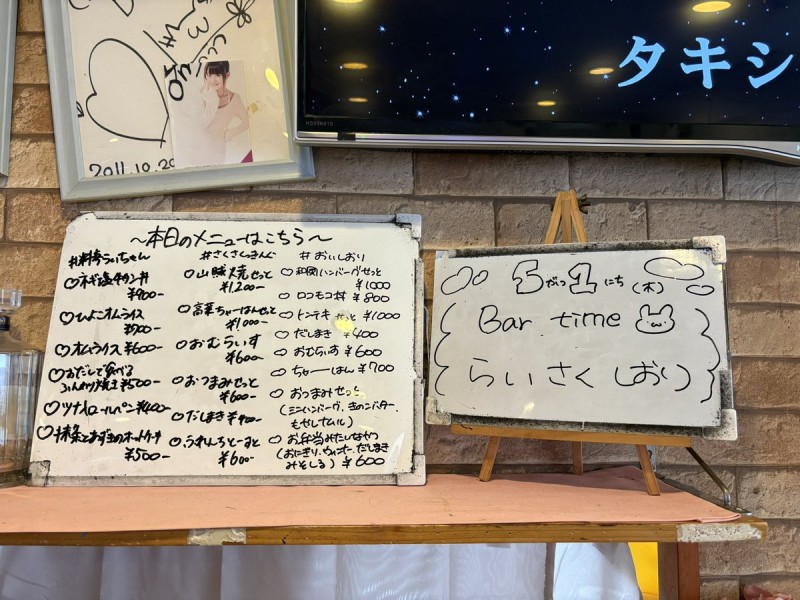 2011.10.29
タキシ
～本日のメニューはこちら～
#料特らいちゃん
♡ネギ塩チキン丼
¥900-
♡ひよこオムライス
¥900-
♡オムライス ¥600-
♡おだしで食べる
ふんわり焼き ¥500-
♡ツナメロールパン ¥400-
♡抹茶とあずきのホットケーキ
¥500-
#さくさくっきんぐ
○山賊焼せっと
¥1,200-
○高菜ちゃーはんせっと
¥1,000-
○おむらいす
¥600-
○おつまみせっと
¥600-
○だしまき ¥400-
○ふれんちとーすと
¥600-
#おいしおり
○和風ハンバーグせっと
¥1000
○ロコモコ丼 ¥800
○トンテキせっと ¥1000
○だしまき ¥400
○おむらいす ¥600
○ちゃーはん ¥700
○おつまみせっと
(ミニハンバーグ、きのこバター、
もやしナムル)
○お弁当みたいなやつ
(おにぎり、ウィンナー、だしまき
みそしる) ¥600
5がつ1にち(木)
Bar time
らいさく しおり